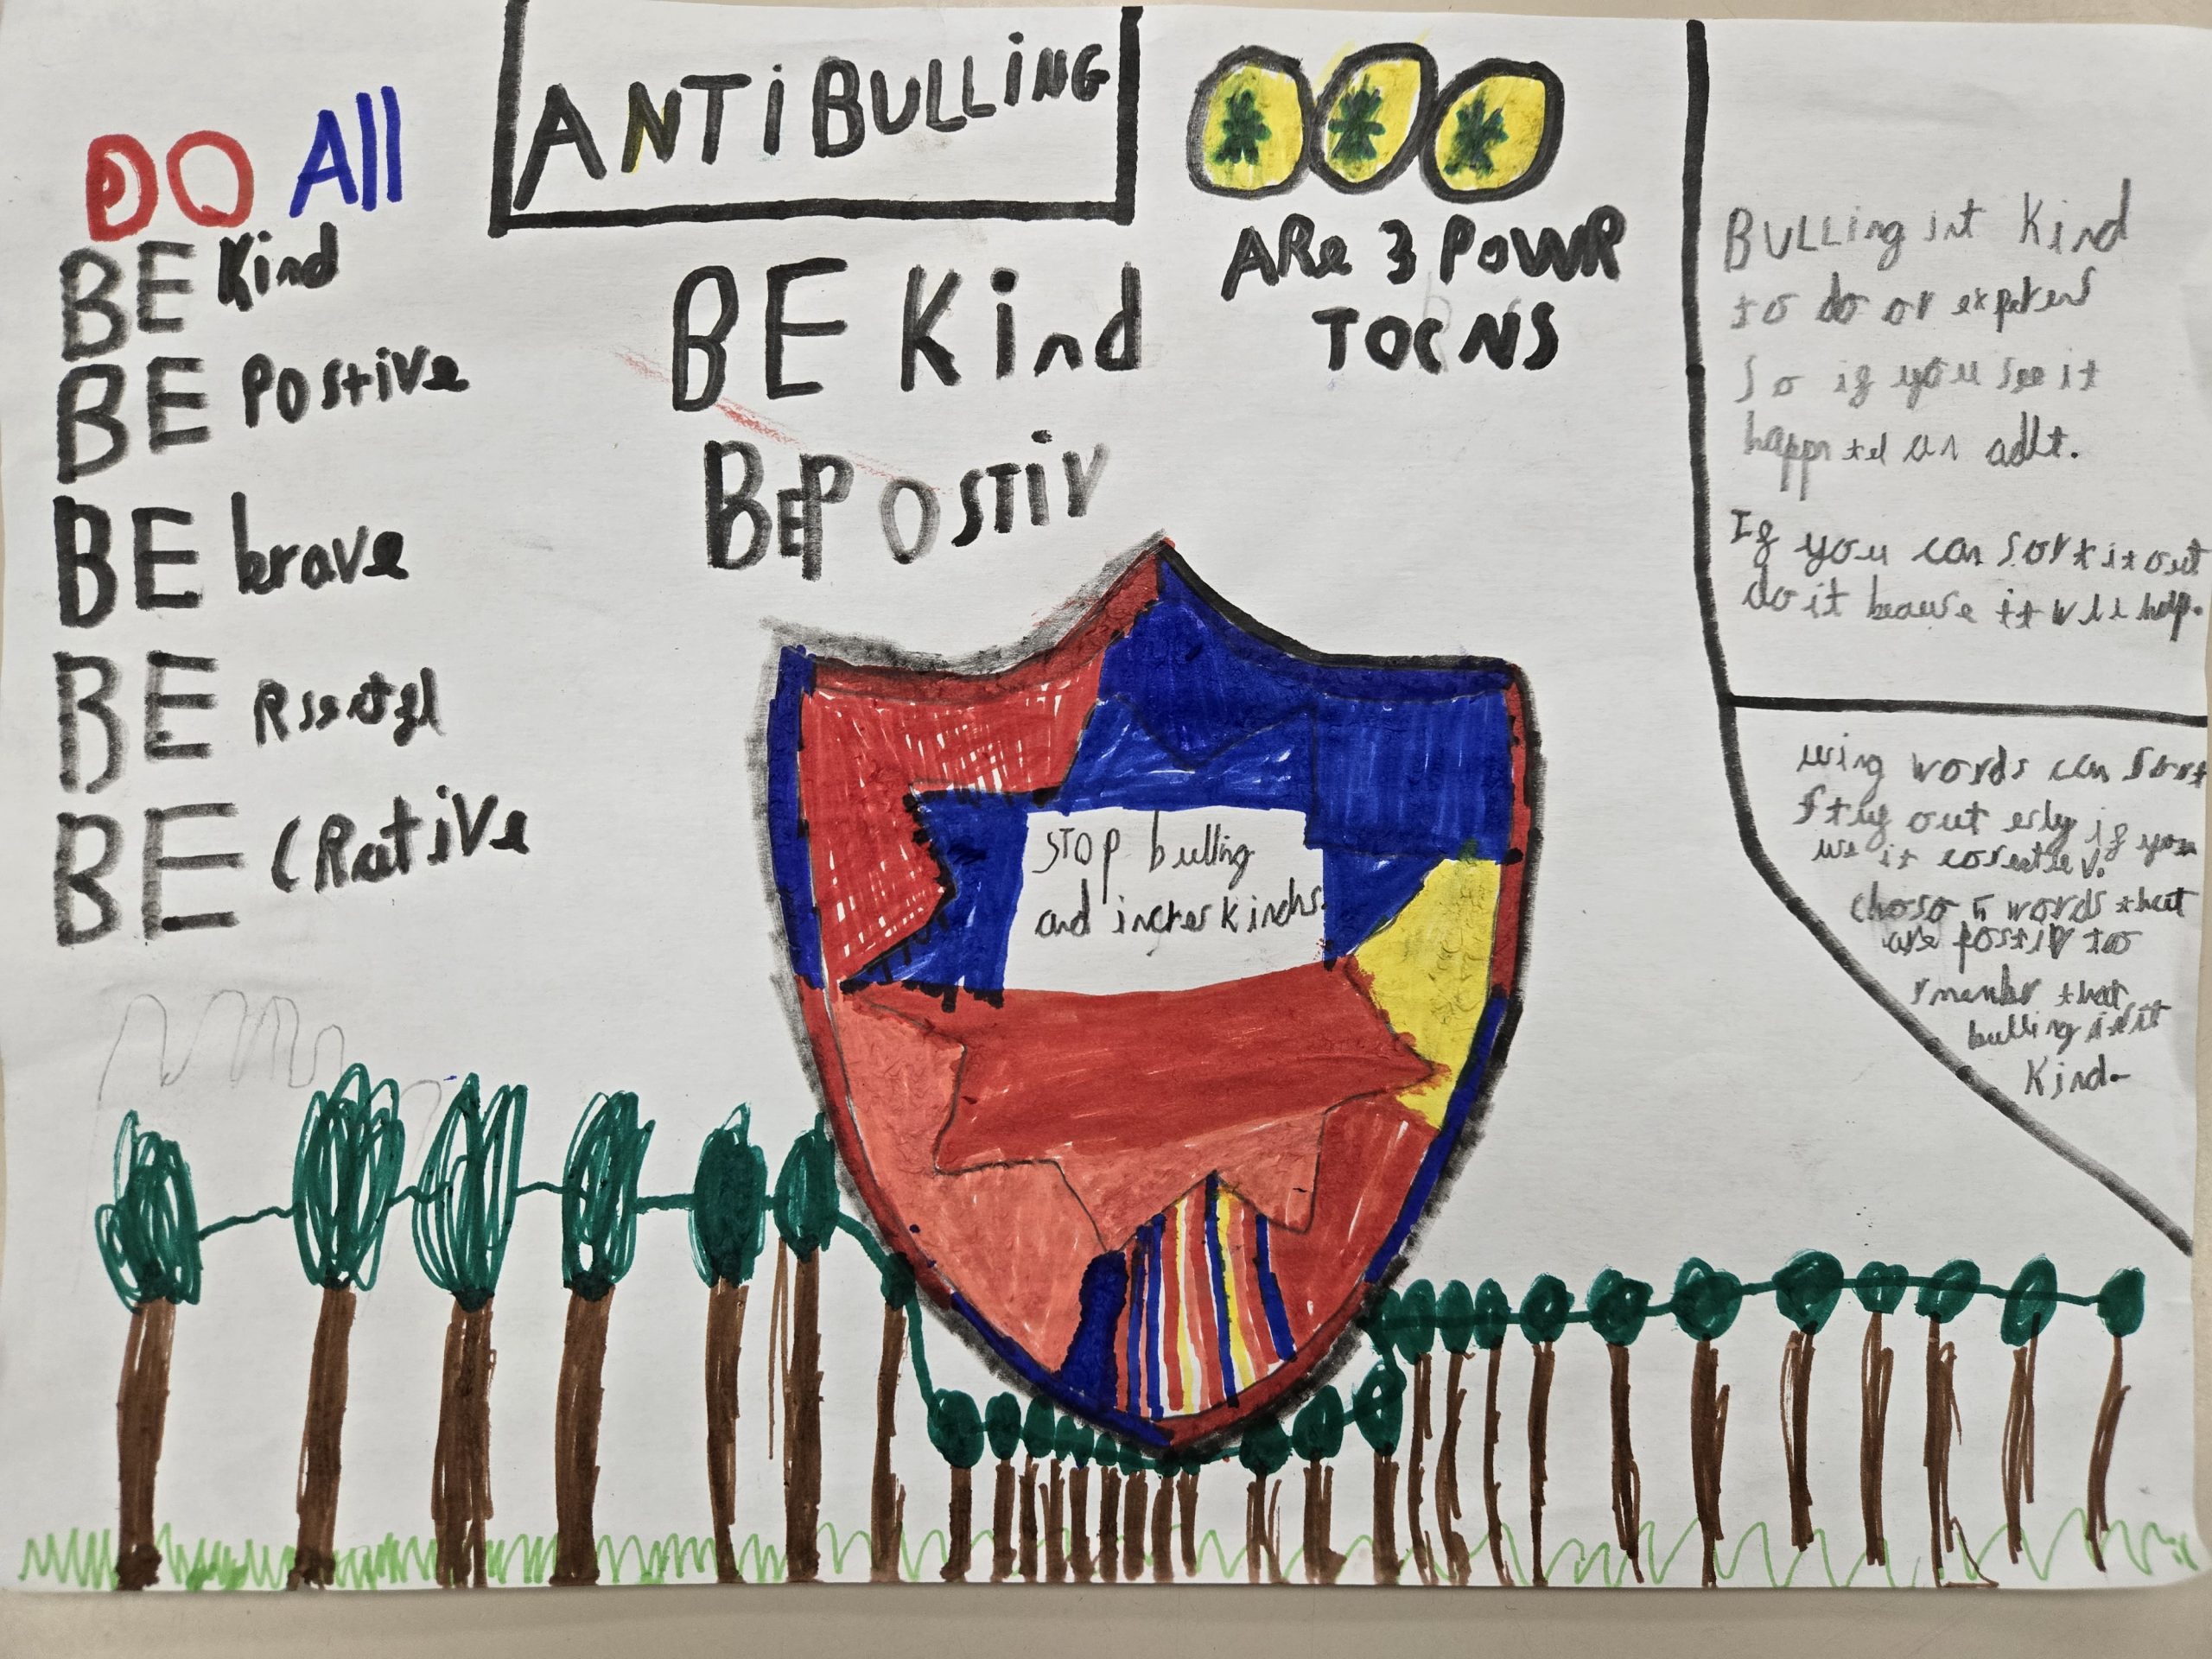 ANTiBULLiNG
DO All
BE Kind
BE POstive
BE brave
BE
BE CRative
BE Kind
BE POSTiV
ARe 3 POWR
TOCNS
BULLing int Kind
to do or expirens
So if you see it
happn tel an adlt.
If you can sort it out
do it beause it wll help.
STOP bulling
and increr kindns.
using words can sort
out erly if you
use it
choso 5 words that
are postiv too
rmembr that
bulling isnt
Kind.